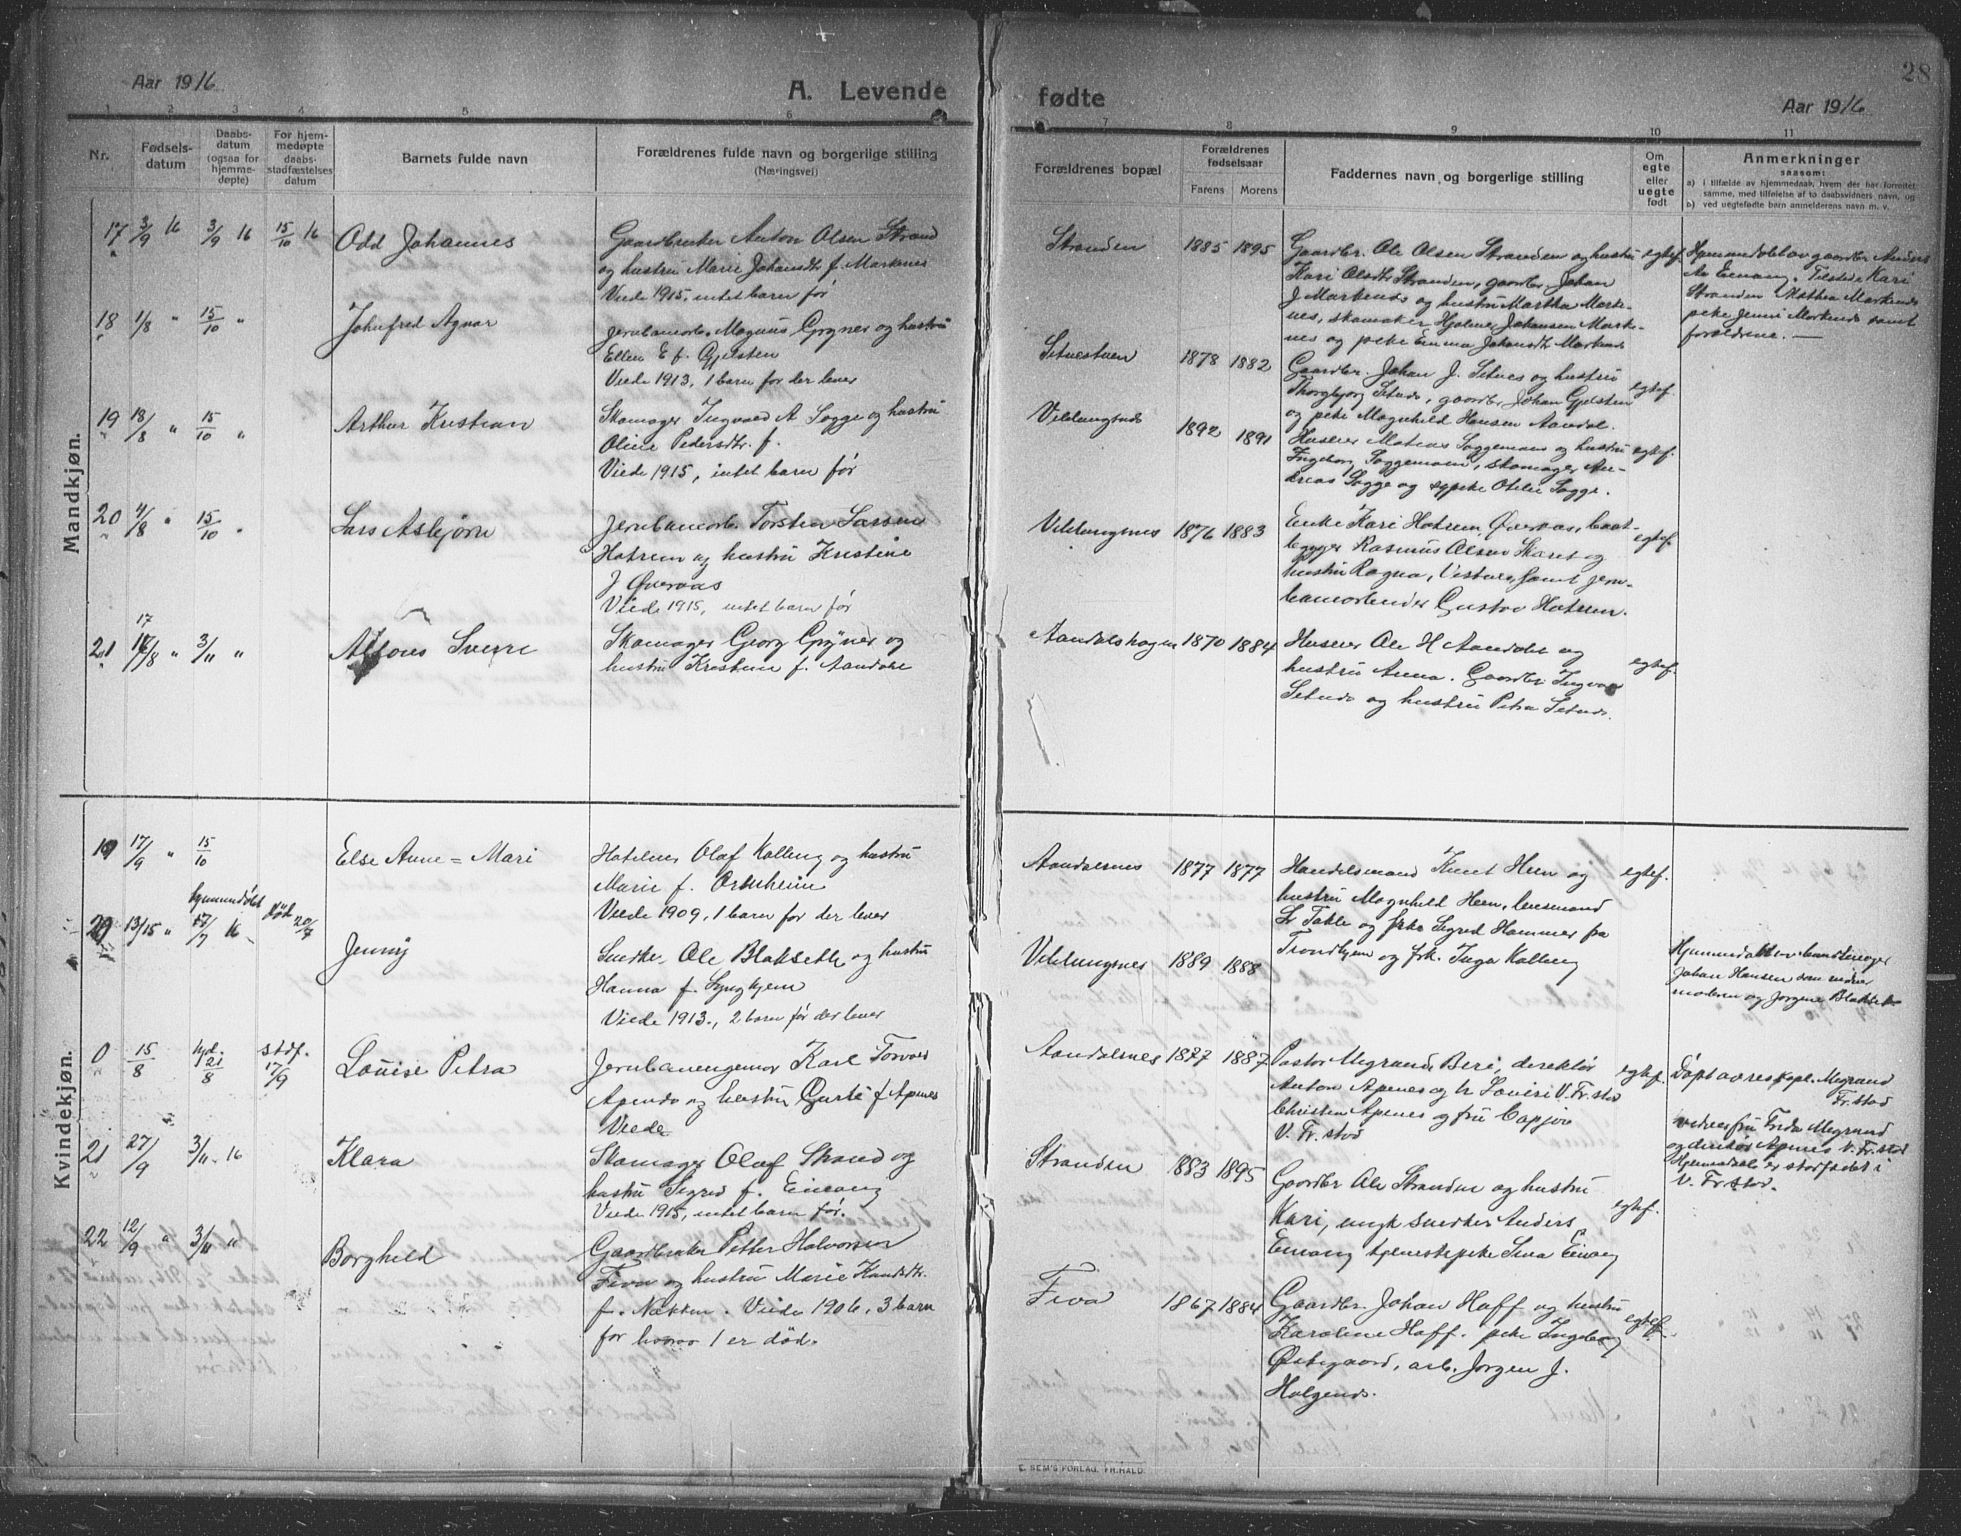 28
Aar 1916
A. Levende
fødte
Aar 1916
1 2 3 4 5 6 7 8 9 10 11
Nr.
Fødsels-
datum
Daabs-
datum
(ogsaa for
hjemme-
døpte)
For hjem-
medøpte
daabs-
stadfæstelses
datum
Barnets fulde navn
Forældrenes fulde navn og borgerlige stilling
(Næringsvei)
Forældrenes bopæl
Forældrenes
fødselsaar
Farens Morens
Faddernes navn og borgerlige stilling
Om
egte
eller
uegte
født
Anmerkninger
saasom:
a) i tilfælde av hjemmedaab, hvem der har forrettet
samme, med tilføielse af to daabsvidners navn, og
b) ved uegtefødte barn anmelderens navn m. v.
Mandkjøn.
17 3/9 16 3/9 16 15/10 16 Odd Johannes
Gaardbruker Anton Olsen Strand
og hustru Marie Johansdtr f. Markenes
Viede 1915, intet barn før
Stranden 1885 1895
Gaardbr. Ole Olsen Stranden og hustru
Kari Olsdtr Stranden, gaardbr. Johan
J Markenes og hustru Martha Marke-
nes, skomaker Hjalmar Johansen Mark-
nes og pike Emma Johansdtr Markenes
egtef.
Hjemmedøbt av gaardbr Anders
Stranden Mathea Markenes
pike Jenni Markenes samt
forældrene. —
18 1/8 " 15/10 " Johnfred Agnar
Jernbanearb. Magnus Gryner og hustru
Ellen E f. Gjelsten
Viede 1913, 1 barn før der lever
Setnestuen 1878 1882
Gaardbr. Johan J. Setnes og hustru
Thorgbjorg Setnes, gaardbr Johan Gjelsten
og pike Magnhild Hansen Aandal.
egtef.
19 18/8 " 15/10 " Arthur Kristian
Skomager Ingvald A Sogge og hustru
Oline Pedersdtr. f.
Viede 1915, intet barn før
Veblungsnes 1892 1891
Huseier Matias Soggemoen og hustru
Ingeborg Soggemoen, skomager An-
dreas Sogge og sypike Otelie Sogge.
egtef.
20 4/8 " 15/10 " Lars Asbjørn
Jernbanearb. Torsten Larsen
Hatrem og hustru Kristine
J Øveraas
Viede 1915, intet barn før
Veblungsnes 1876 1883
Enke Kari Hatrem, Øveraas, baat-
bygger Rasmus Olsen Skaret og
hustru Ragna, Vestnes, samt jern-
banearbeider Gustav Hatrem.
egtef.
17
21 16/8 " 3/11 " Alfons Sverre
Skomager Georg Gryner og
hustru Kristine f. Aandahl
Aandalshagen 1870 1884
Huseier Ole H Aandal og
hustru Anna. Gaardbr. Ingvar
Setnes og hustru Petra Setnes.
egtef.
Kvindekjøn.
19 17/9 " 15/10 Else Anne = Mari
Hoteleier Olaf Kolleng og hustru
Marie f. Ormheim
Viede 1909, 1 barn før der lever
Aandalsnes 1877 1877
Handelsmand Knut Hen og
hustru Magnhild Hen, lensmand
L Takle og frk Sigrid Hammer fra
Trondhjem og frk. Inga Kolleng
egtef.
hjemmedøbt
29 13/15 " 17/7 16 død 20/7 Jenny
Snedker Ole Blakseth og hustru
Hanna f. Lyngheim
Viede 1913., 2 barn før der lever
Veblungsnes 1889 1888
Hjemmedøbt av handelsager
Johan Hansen som vidner
moderen og Jørgine Blakseth
0 15/8 hjd. 21/8 stdf. 17/9 Louise Petra
Jernbaneingeniør Karl Torvald
Apenes og hustru Gurli f Apenes
Viede
Aandalsnes 1877 1887
Pastor Megrund, Beri, direktør
Anton Apenes og hr Louise V. Fr.stad
Christen Apenes og fru Cappja
V. Fr.stad
egtef.
Døpt av reskapl. Megrund
Fr.stad
vidner fru Frida Megrund
og direktør Apenes V. Fr.stad
Hjemmedaab er stadfæstet i
V. Fr.stad.
21 27/9 3/11 16 Klara
Skomager Olaf Strand og
hustru Sigrid f. Einang
Viede 1915, intet barn før.
Stranden 1883 1895
Gaardbr Ole Stranden og hustru
Kari, ungk snedker Anders
Einang tjenestepike Sina Einang
egtef.
22 12/9 " 3/11 " Borghild
Gaardbruker Petter Halvorsen
Fiva og hustru Marie Knudsdtr.
f. Nakken. Viede 1906. 3 barn
før hvorav 1 er død.
Fiva 1867 1884
Gaardbr. Johan Hoff og hustru
Karoline Hoff. pike Ingeborg
Østigaard, arb. Jørgen J.
Holgenes.
egtef.
E. SEM'S FORLAG, FR.HALD.